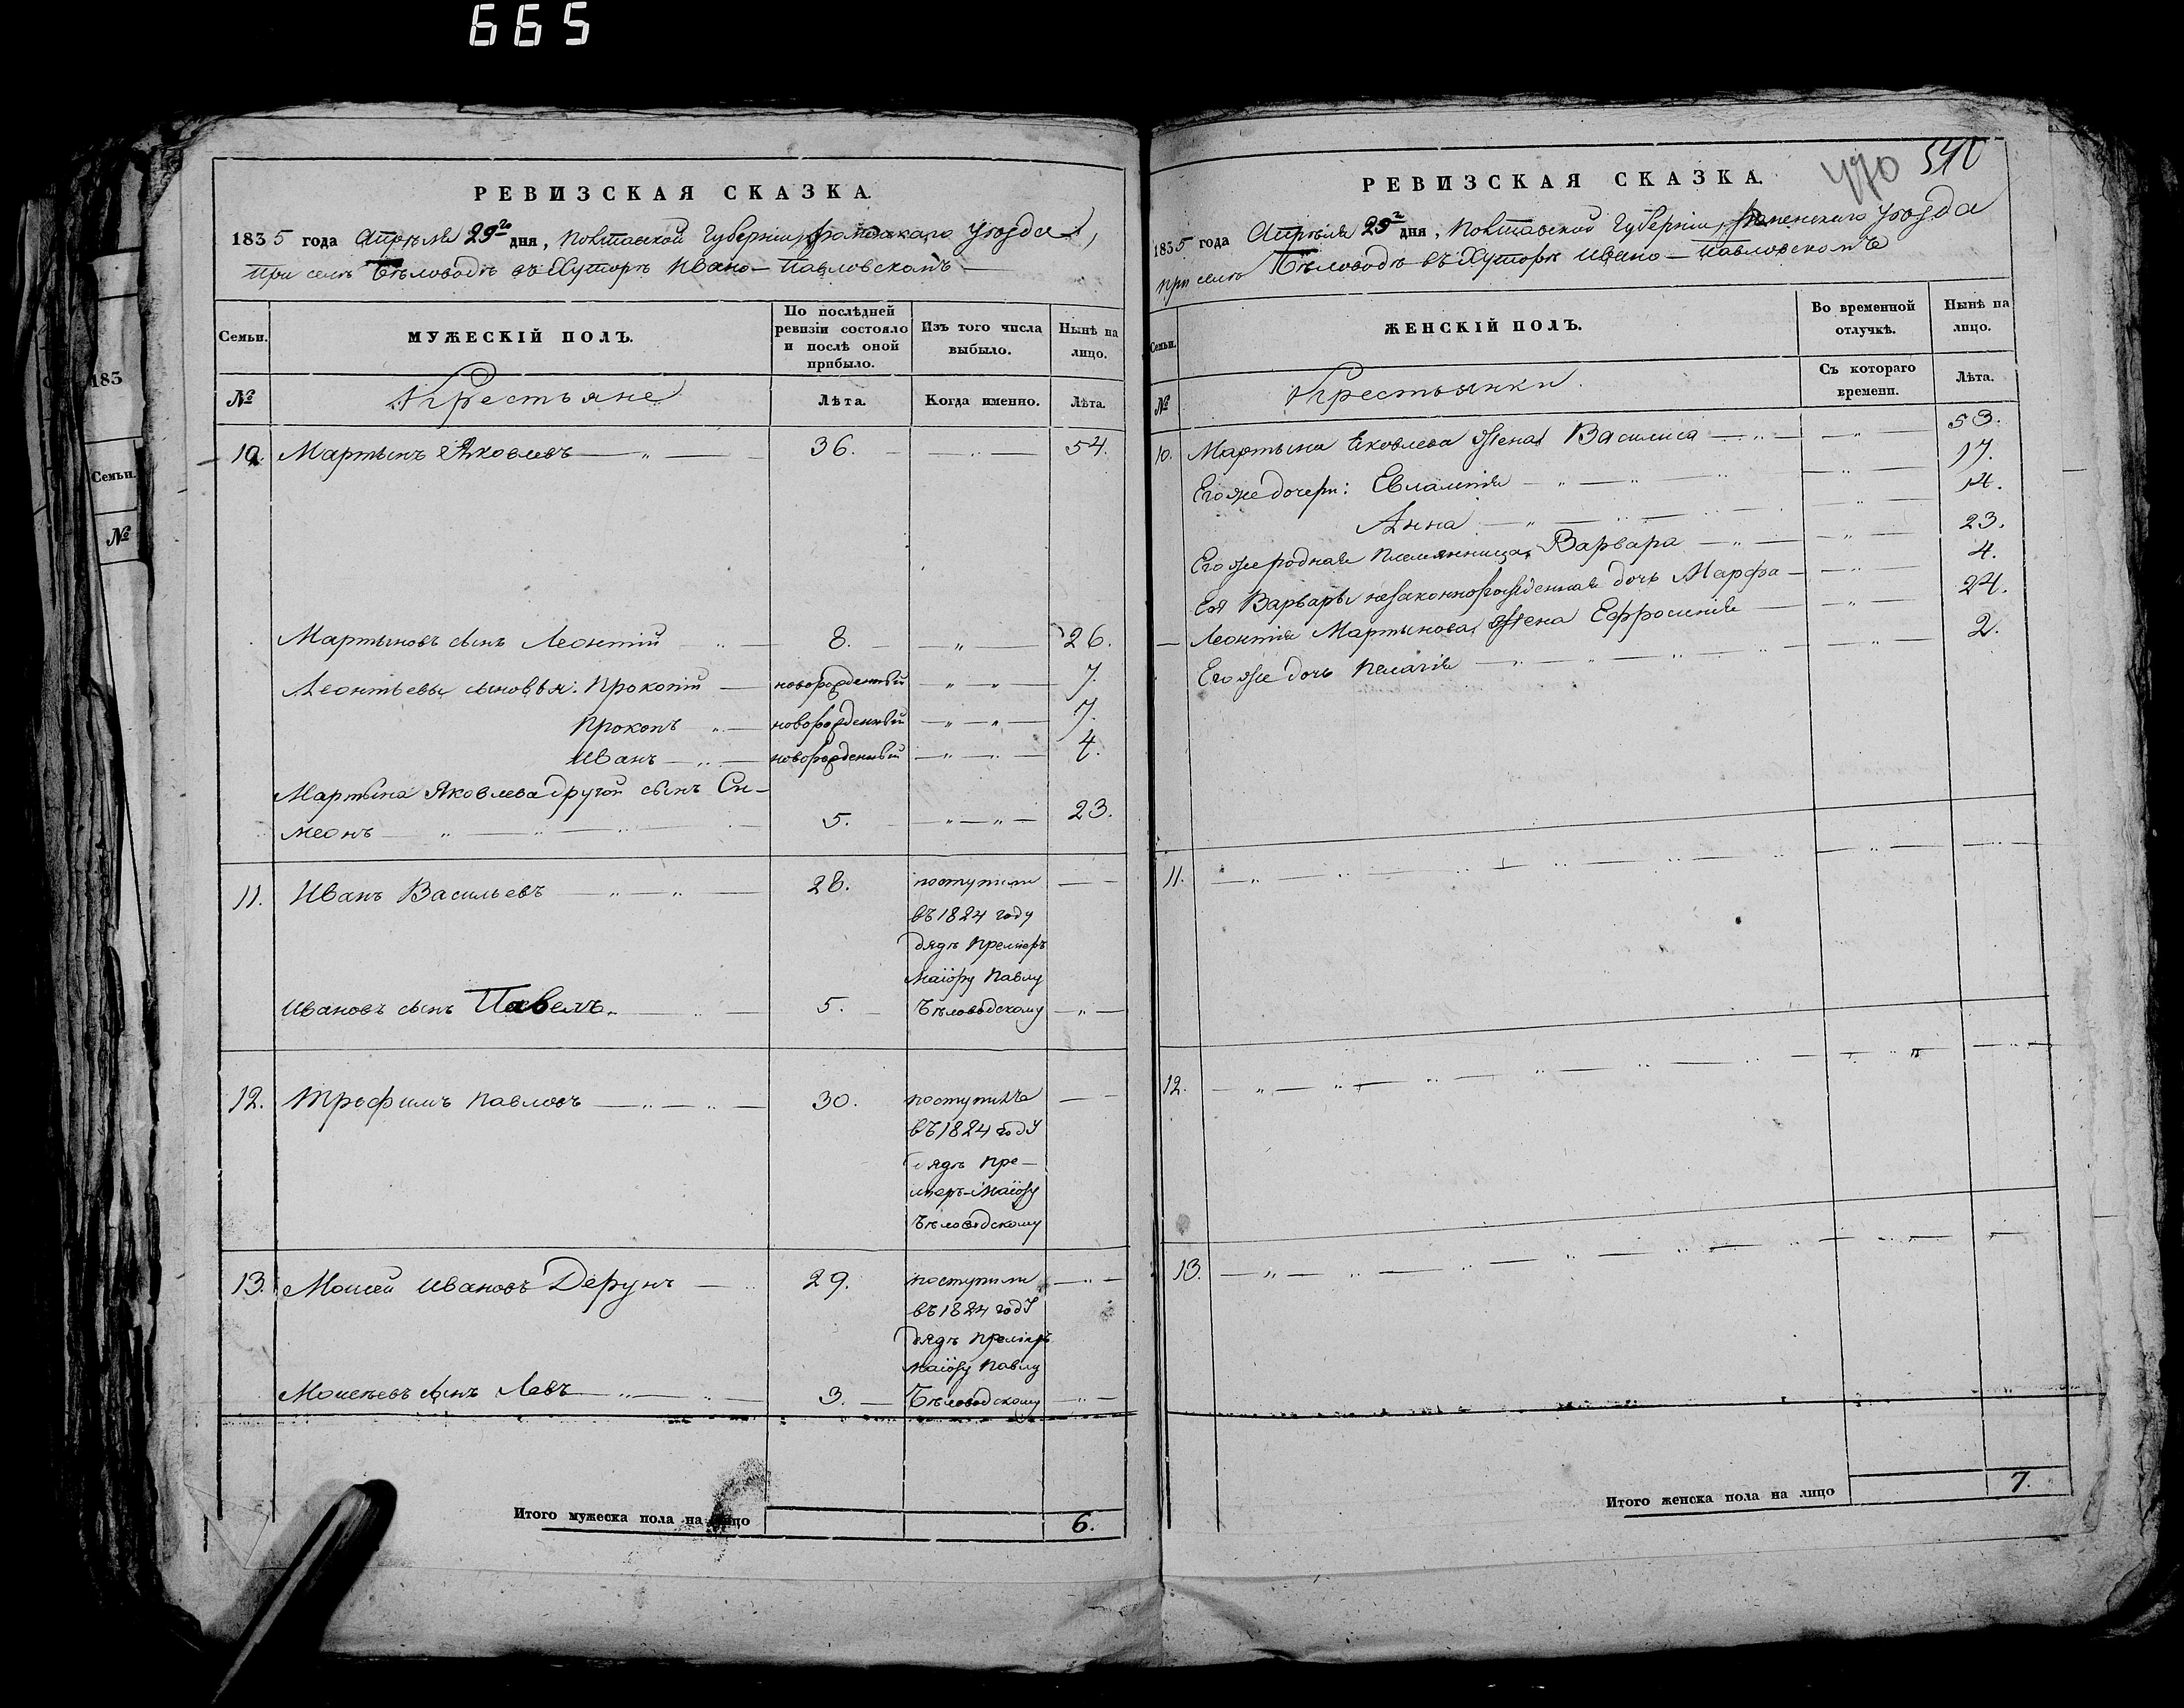 665
РЕВИЗСКАЯ СКАЗКА.
1835 года Апреля 29го дня, Полтавской Губернии, Роменскаго уезда,
при селе Беловоде въ Хуторе Ивано-Павловскомъ
Семьи.
МУЖЕСКІЙ ПОЛЪ.
По послѣдней ревизіи состояло и послѣ оной прибыло.
Изъ того числа выбыло.
Нынѣ на лицо.
№
Крестьяне
Лѣта.
Когда именно.
Лѣта.
10. Мартынъ Яковлевъ 36. 54.
Мартыновъ сынъ Леонтій 8. 26.
Леонтьевы сыновья: Прокопій новорожденный 7.
Прокопъ новорожденный 7.
Иванъ новорожденный 4.
Мартына Яковлева другой сынъ Си-
меонъ 5. 23.
11. Иванъ Васильевъ 28. поступили
въ 1824 году
дядѣ Премиеръ
Маіору Павлу
Ивановъ сынъ Павелъ. 5. Бѣловодскому
12. Трофимъ Павловъ 30. поступилъ
въ 1824 году
дядѣ Пре-
миеръ-Маіору
Бѣловодскому
13. Моисей Ивановъ Дерунъ 29. поступили
въ 1824 году
дядѣ Премиеръ
Маіору Павлу
Моисеевъ сынъ Левъ 3. Бѣловодскому
Итого мужеска пола на лицо 6.
470 540
РЕВИЗСКАЯ СКАЗКА.
1835 года Апреля 29 дня, Полтавской Губерніи, Роменскаго уезда
при селѣ Бѣловодѣ въ Хуторѣ Ивано-Павловскомъ
Семьи.
ЖЕНСКІЙ ПОЛЪ.
Во временной отлучкѣ.
Нынѣ на лицо.
№
Крестьянки.
Съ котораго времени.
Лѣта.
10. Мартына Яковлева жена Василиса 53.
Его же дочери: Евлампія 17.
Анна 14.
Его же родная племянница Варвара 23.
Ея Варвары незаконнорожденная дочь Марфа 4.
Леонтія Мартынова жена Ефросинія 24.
Его же дочь Пелагія 2.
11.
12.
13.
Итого женска пола на лицо 7.
185
Семьи.
№